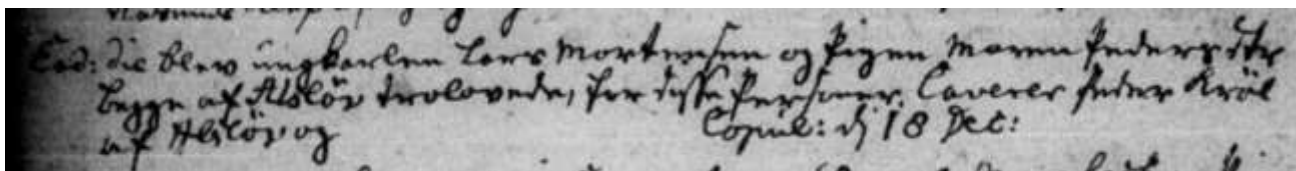 Eod: die blev ungkarlen Lars Mortensen og Pigen Maren Peders dtr
begge af Alslöv trolovede, for disse Personer Caverer Peder Kröl
af Alslöv og Copul: dj 18 Dec: